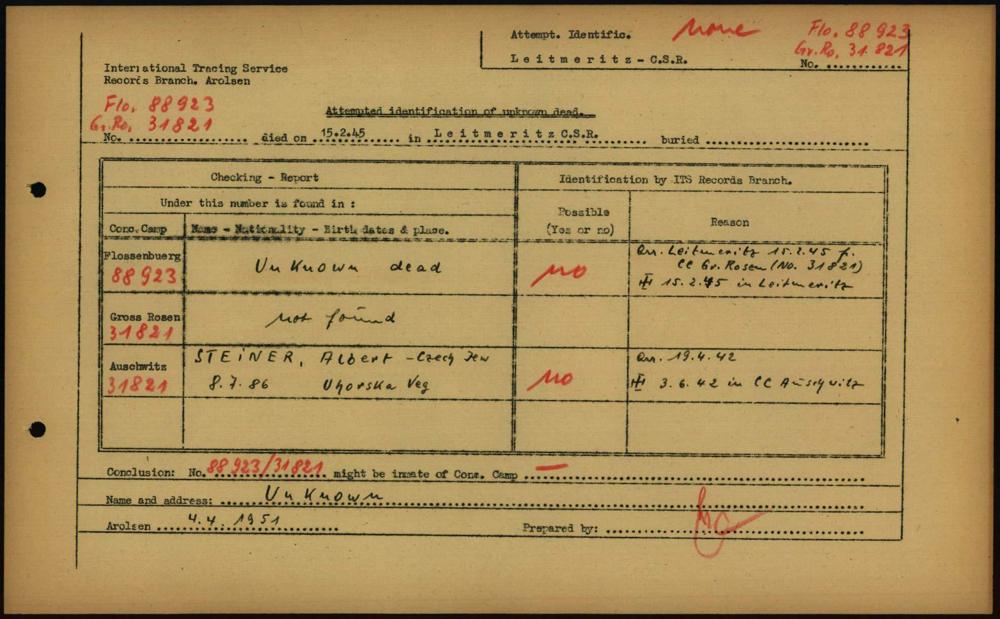 Attempt. Identific. none Flo. 88 923
Gr. Ro. 31 821
Leitmeritz - C.S.R. No. ............
International Tracing Service
Records Branch. Arolsen
Flo. 88923
Gr. Ro. 31821
Attempted identification of unknown dead.
No. ............ died on 15.2.45 in Leitmeritz C.S.R. buried ............
Checking - Report
Identification by ITS Records Branch.
Under this number is found in :
Possible
(Yes or no)
Reason
Conc. Camp Name - Nationality - Birth dates & place.
Flossenbuerg
88 923
Unknown dead
no
Arr. Leitmeritz 15.2.45 f.
CC Gr. Rosen (No. 31821)
15.2.45 in Leitmeritz
Gross Rosen
31821
not found
Auschwitz
31821
STEINER, Albert - Czech Jew
8.7.86 Uhorska Veg
no
Arr. 19.4.42
3.6.42 in CC Auschwitz
Conclusion: No. 88 923/31821 might be inmate of Conc. Camp —
Name and address: Unknown
Arolsen 4.4.1951 Prepared by: ............